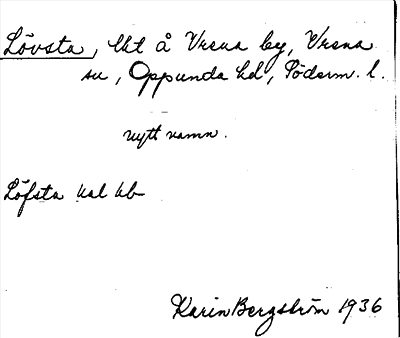 Lövsta, lht å Vrena by, Vrena
sn, Oppunda hd, Söderm. l.
nytt namn.
Löfsta kal kb
Karin Bergström 1936